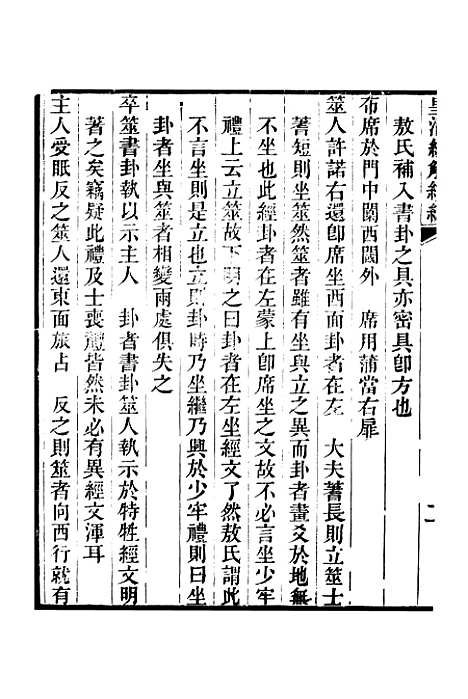 皇清經解續編
二
敖氏補入書卦之具亦密具卽方也
布席於門中闑西閾外　席用蒲當右扉
筮人許諾右還卽席坐西面卦者在左　大夫蓍長則立筮士
蓍短則坐筮然筮者雖有坐與立之異而卦者畫爻於地無
不坐也此經卦者在左蒙上卽席坐之文故不必言坐少牢
禮上云立筮故下明之曰卦者在左坐經文了然敖氏謂此
不言坐則是立也立則卦時乃坐繼乃興於少牢禮則曰坐
卦者坐與筮者相變兩處俱失之
卒筮書卦執以示主人　卦者書卦筮人執示於特牲經文明
著之矣竊疑此禮及士喪禮皆然未必有異經文渾耳
主人受眡反之筮人還東面旅占　反之則筮者向西行就有